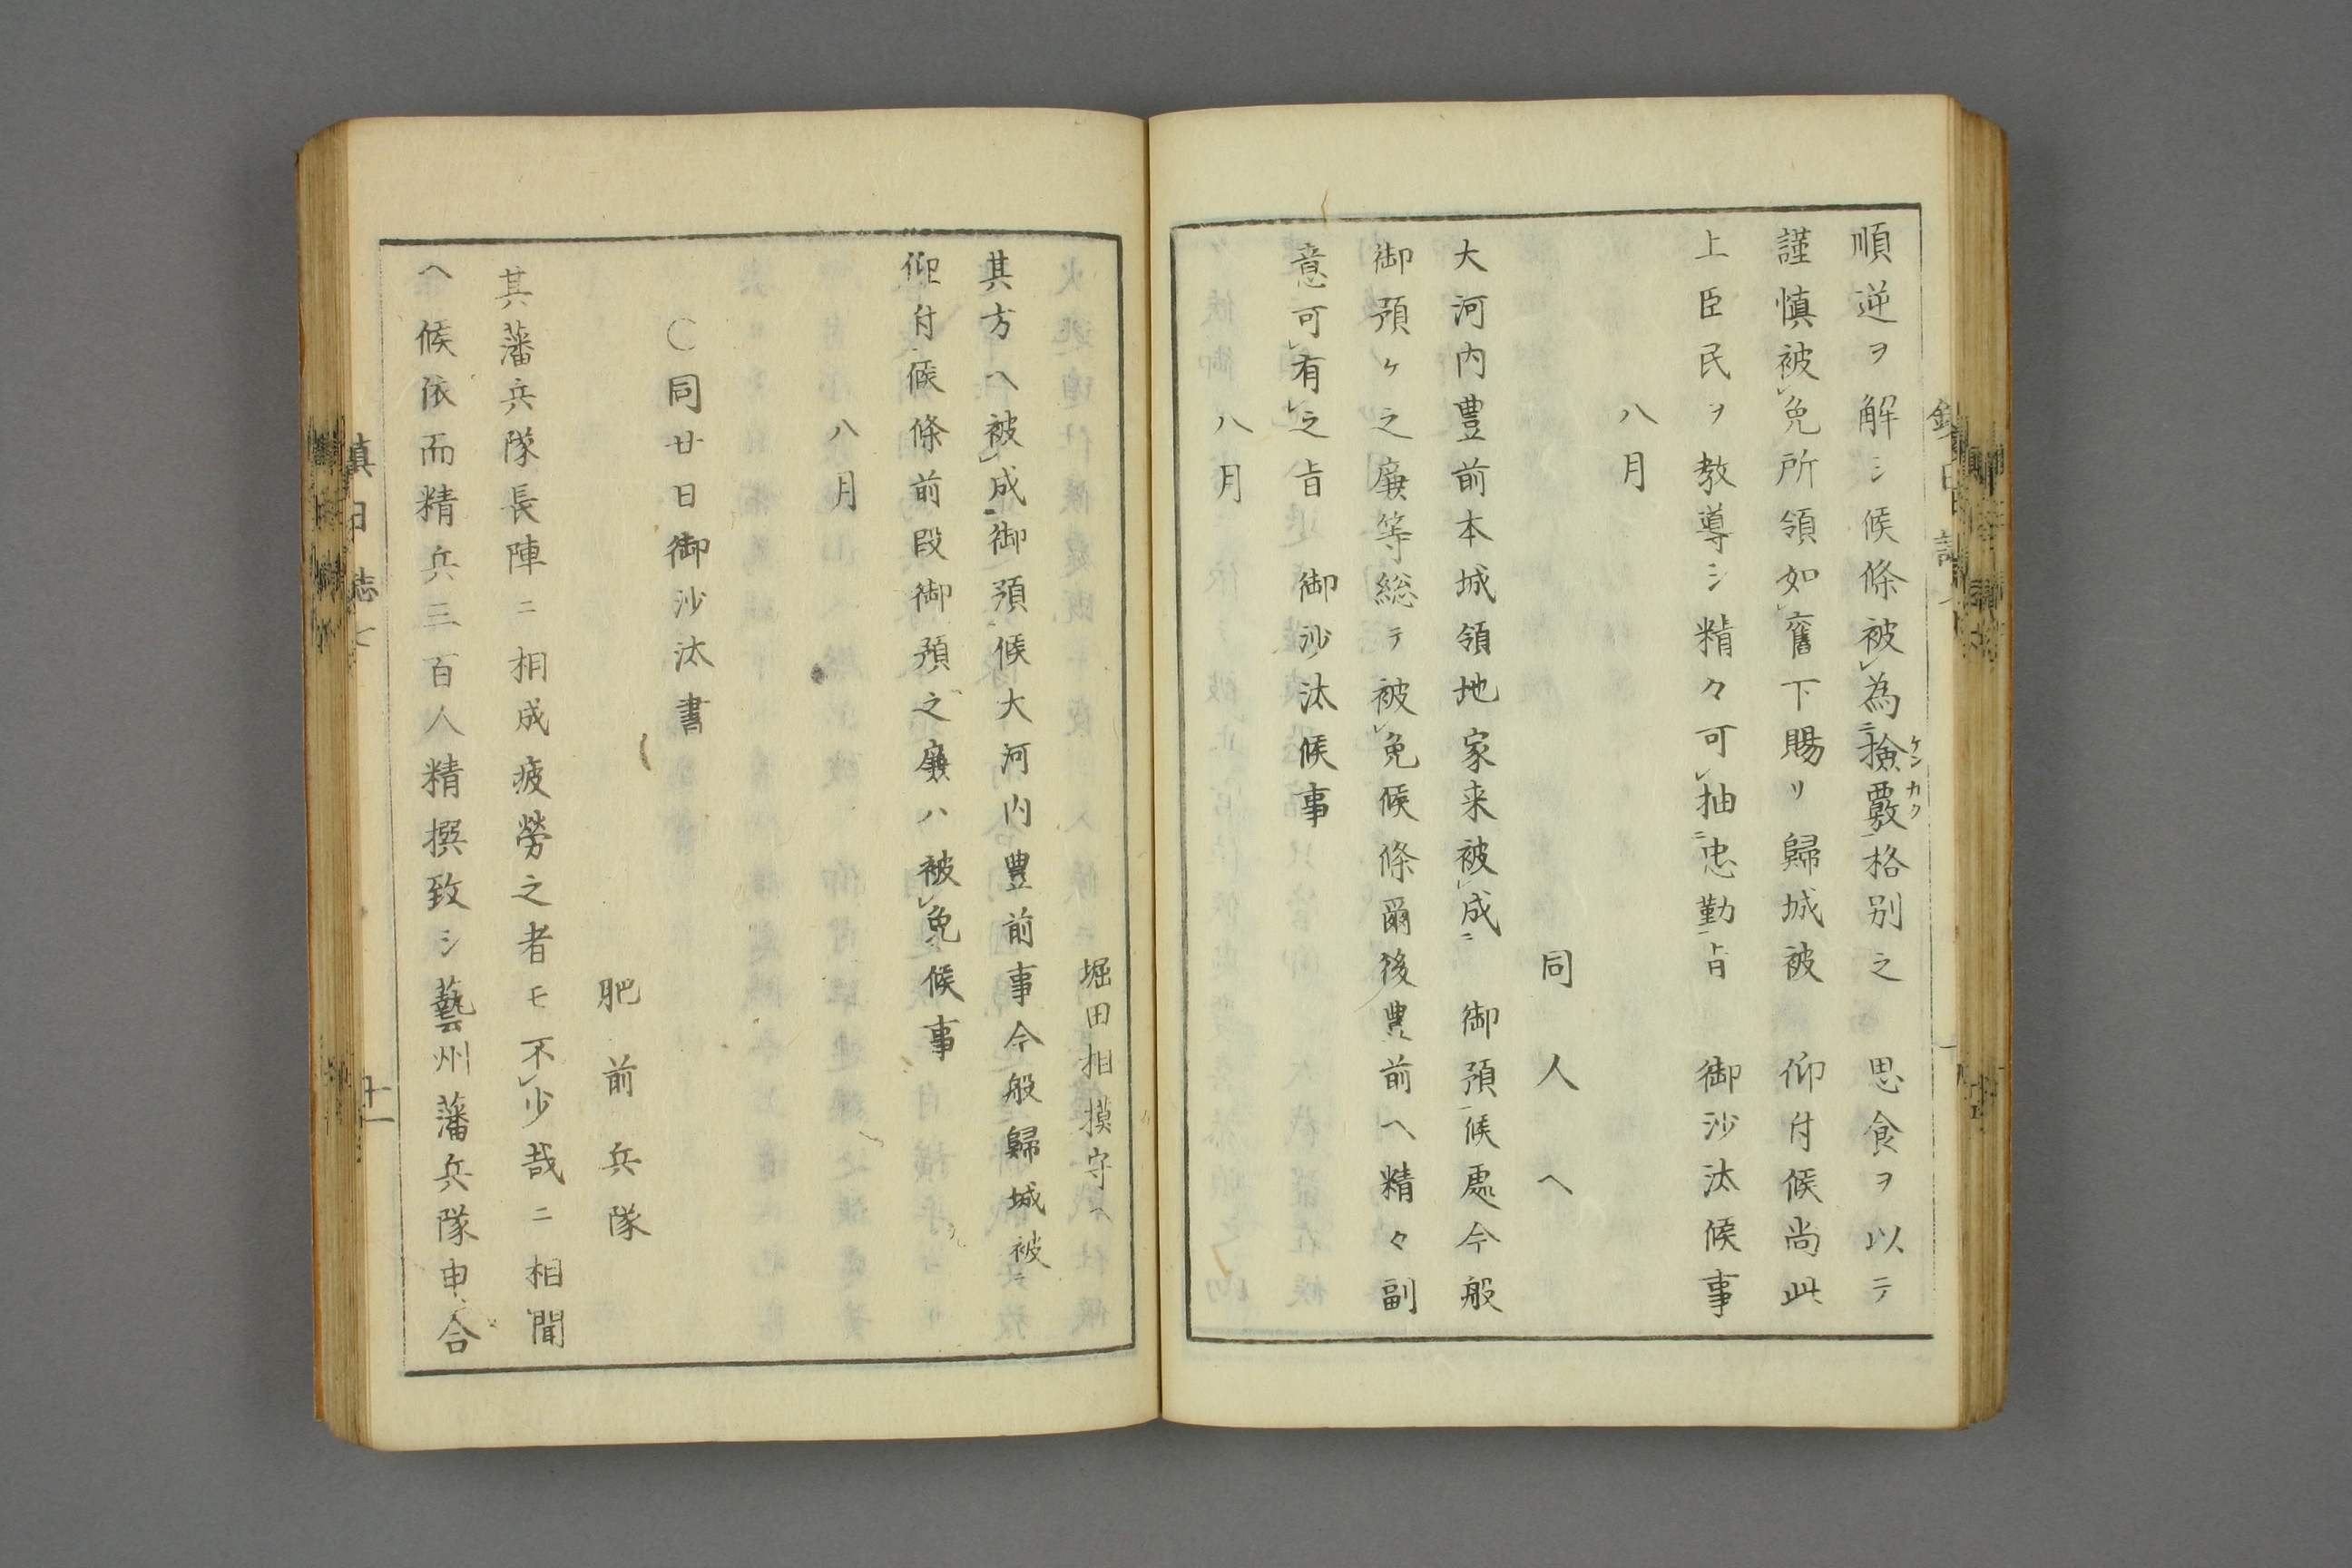 順逆ヲ解シ候條被㆑為㆓撿覈㆒格別之　思食ヲ以テ
ケンカク
謹慎被㆑免所領如㆑舊下賜リ歸城被　仰付候尚此
上臣民ヲ教導シ精々可㆑抽㆓忠勤㆒旨　御沙汰候事
八月
同人ヘ
大河内豊前本城領地家来被㆑成㆓　御預㆒候處今般
御預ヶ之廉等総テ被㆑免候條爾後豊前ヘ精々副
意可㆑有㆑之旨　御沙汰候事
八月
堀田相摸守ヘ
其方ヘ被㆑成㆓御預㆒候大河内豊前事今般歸城被㆓
仰付㆒候條前段御預之廉ハ被㆑免候事
八月
〇同廿日御沙汰書
肥前兵隊
其藩兵隊長陣ニ相成疲勞之者モ不㆑少哉ニ相聞
ヘ候依而精兵三百人精撰致シ藝州藩兵隊申合
鎮日志七
十一